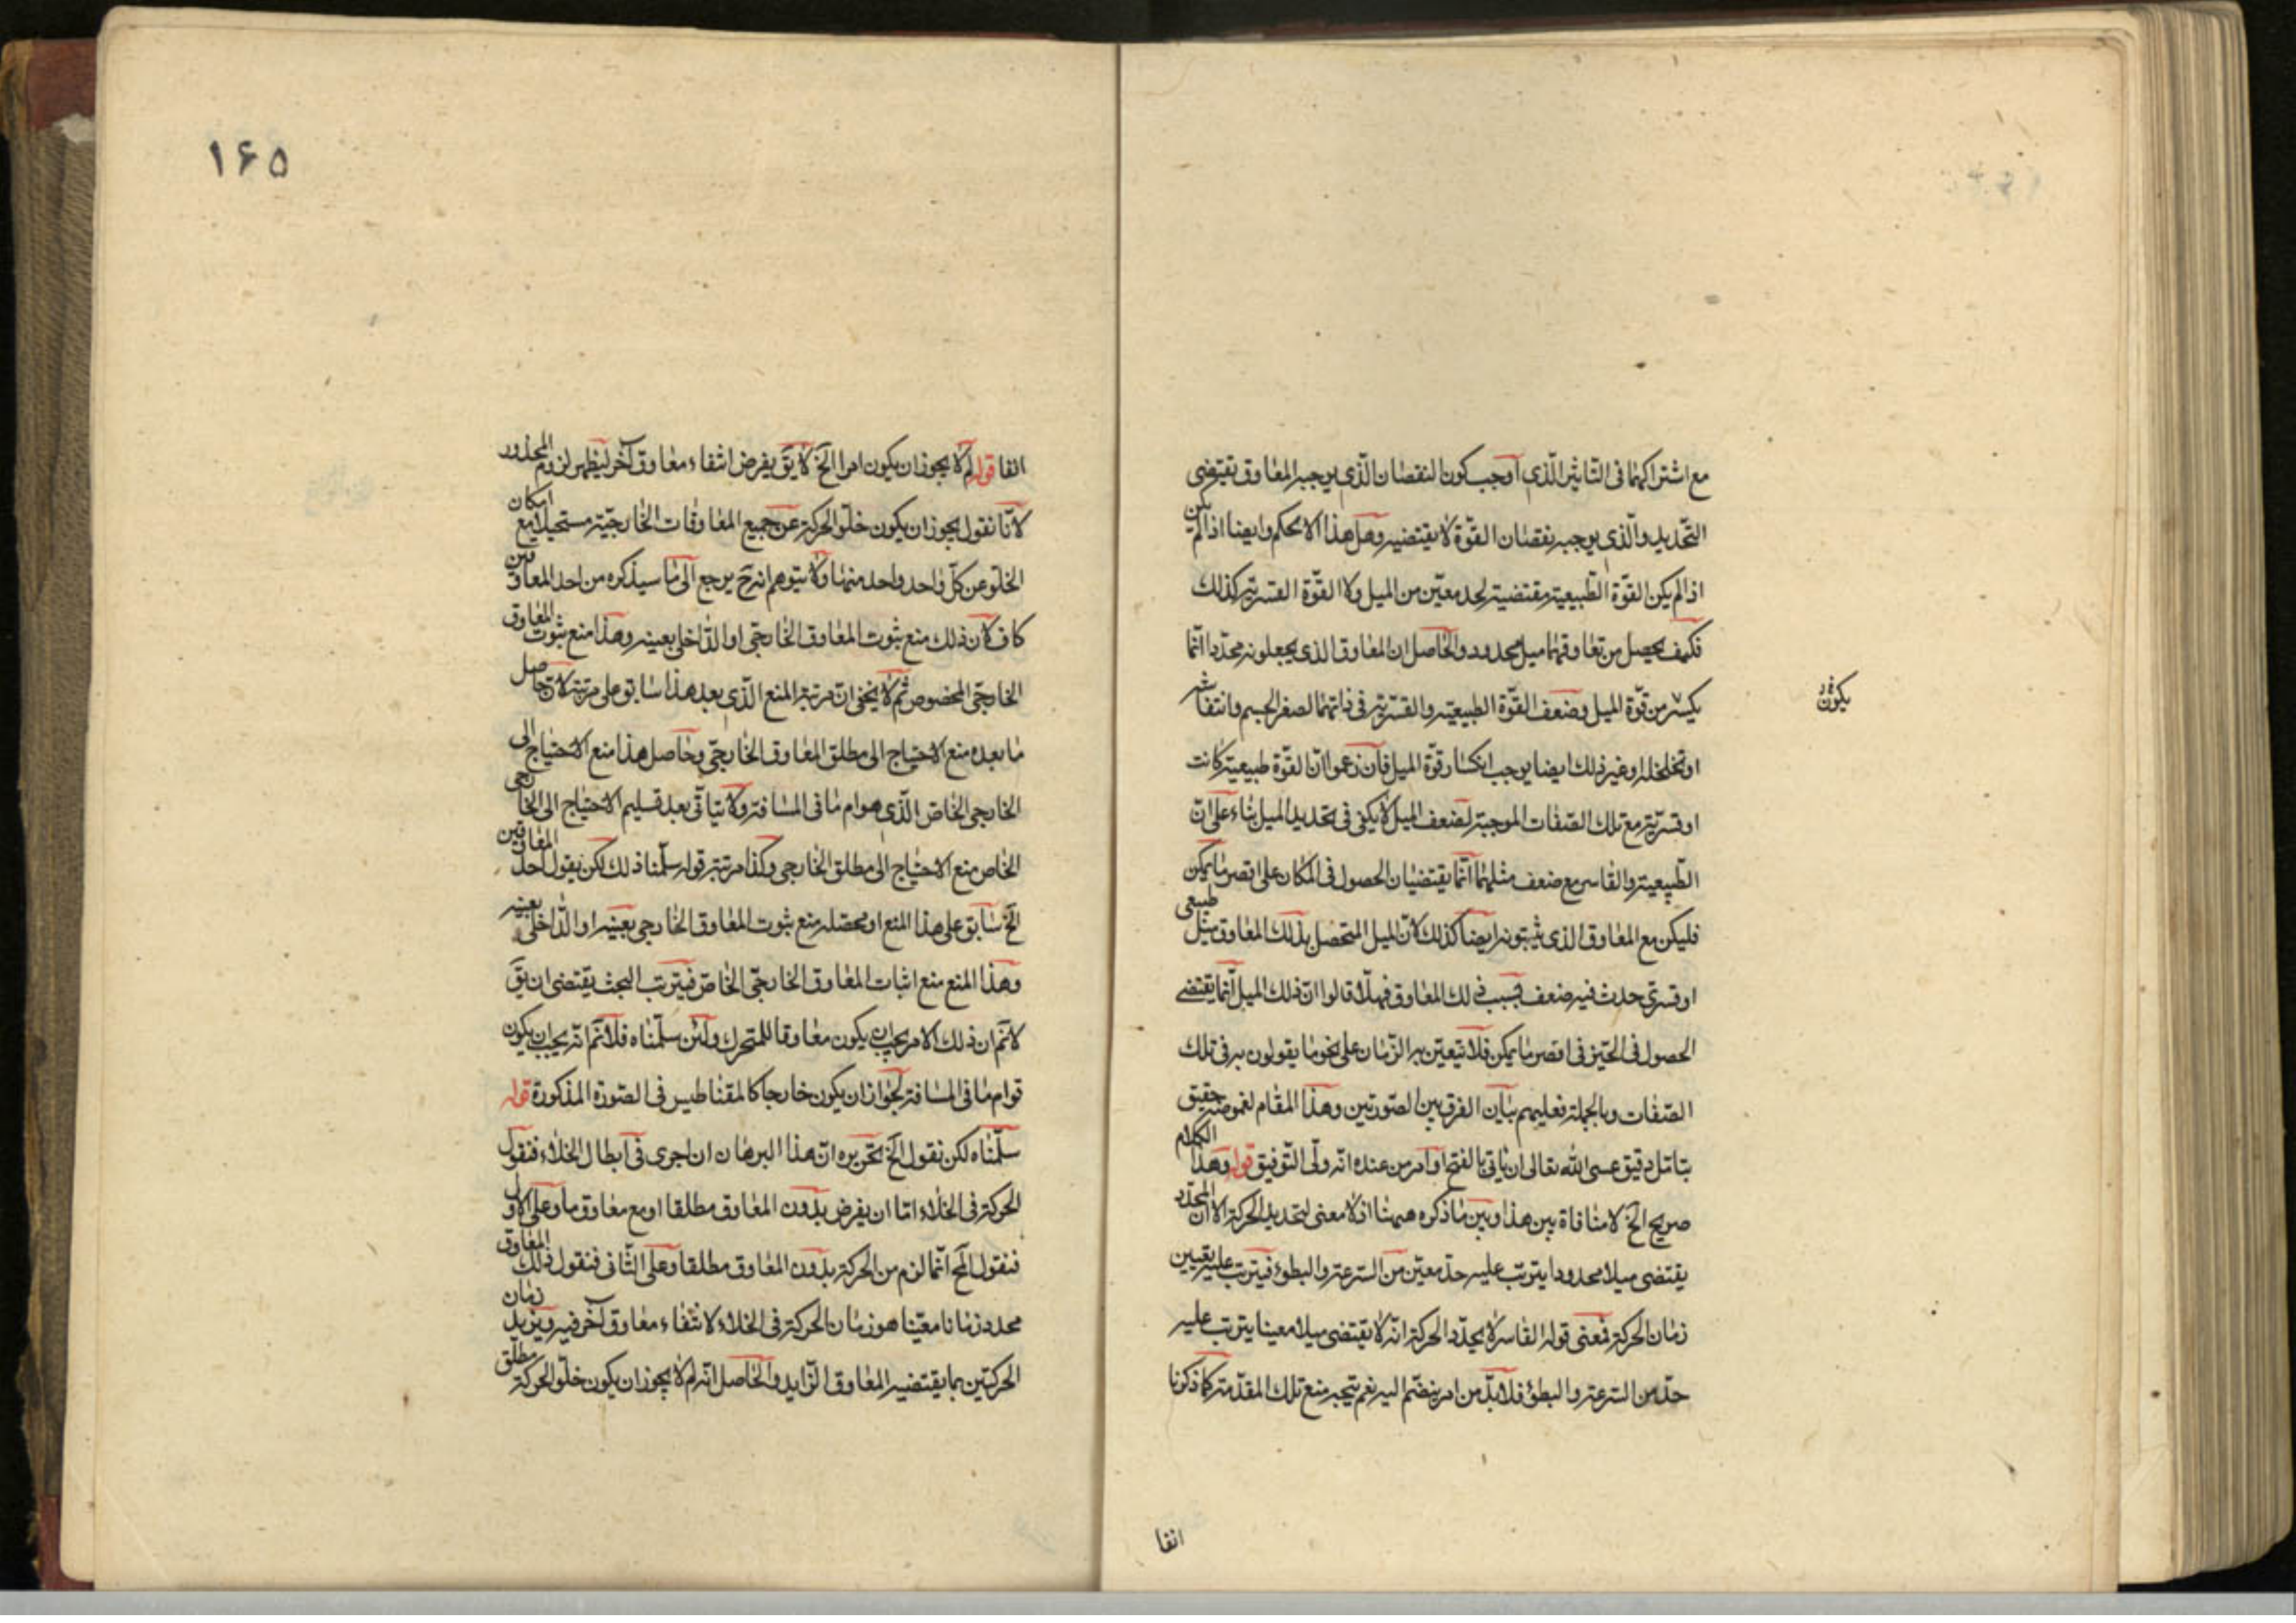 مع اشتراكهما فى التاثير الذى اوجب كون النقصان الذى يوجبه المعاوق يقتضى
التحديد والذى يوجبه نقصان القوة لا يقتضيه وهل هذا الا تحكم وايضا اذا لم يكن
اذا لم يكن القوة الطبيعية مقتضية لحد معين من الميل ولا القوة القسرية كذلك
فكيف يحصل من تعاوقهما ميل محدود والحاصل ان المعاوق الذى يجعلونه محددا انما
يكسر من قوة الميل وضعف القوة الطبيعية والقسرية فى ذاتهما لصغر الجسم وانتفاشه
يكون
او تخلخله او غير ذلك ايضا يوجب انكسار قوة الميل فان زعموا ان القوة طبيعية كانت
او قسرية مع تلك الصفات الموجبة لضعف الميل لا يكفى فى تحديد الميل بناء على ان
الطبيعية والقاسر مع ضعف مثلهما انما يقتضيان الحصول فى المكان على اقصر ما يمكن
فليكن مع المعاوق الذى يثبتونه ايضا كذلك لان الميل المتحصل بذلك المعاوق ميل طبيعى
او قسرى حدث فيه ضعف بسبب ذلك المعاوق فهلا قالوا ان ذلك الميل انما يقتضى
الحصول فى الحيز فى اقصر ما يمكن فلا يتعين به الزمان على نحو ما يقولون به فى تلك
الصفات وبالجملة فعليهم بيان الفرق بين الصورتين وهذا المقام لغموضه حقيق
بتامل دقيق عسى الله تعالى ان ياتى بالفتح او امر من عنده انه ولى التوفيق قوله وهذا الكلام
صريح الخ لا منافاة بين هذا وبين ما ذكره ههنا اذ لا معنى لتحديد الحركة الا ان المحدد
يقتضى ميلا محدودا يترتب عليه حد معين من السرعة والبطؤ فيترتب عليه تعيين
زمان الحركة فمعنى قوله القاسر لا يحدد الحركة انه لا يقتضى ميلا معينا يترتب عليه
حد من السرعة والبطؤ فلا بد من امر ينضم اليه نعم يتجه منع تلك المقدمة كما ذكرنا
انفا
١۶۵
انفا قوله لم لا يجوز ان يكون امرا الخ لا يق يفرض انتفاء معاوق آخر ليظهر لزوم المحذور
لانا نقول يجوز ان يكون خلو الحركة عن جميع المعاوقات الخارجية مستحيلا مع امكان
الخلو عن كل واحد واحد منها ولا يتوهم انه ح يرجع الى ما سيذكره من احد المعاوقين
كاف لان ذلك منع ثبوت المعاوق الخارجى او الداخلى بعينه وهذا منع ثبوت المعاوق
الخارجى المخصوص ثم لا يخفى ان مرتبة المنع الذى بعد هذا سابق على مرتبته لان حاصل
ما بعده منع الاحتياج الى مطلق المعاوق الخارجى وحاصل هذا منع الاحتياج الى
الخارجى الخاص الذى هو ام ما فى المسافة ولا يتاتى بعد تسليم الاحتياج الى الخارجى
الخاص منع الاحتياج الى مطلق الخارجى وكذا مرتبة قوله سلمنا ذلك لكن يقول احد المعاوقين
الخ سابق على هذا المنع او محصله منع ثبوت المعاوق الخارجى بعينه او الداخلى بعينه
وهذا المنع منع اثبات المعاوق الخارجى الخاص فترتب البحث يقتضى ان يق
لا نم ان ذلك الامر يجب ان يكون معاوقا للمتحرك ولئن سلمناه فلا نم انه يجب ان يكون
قوام ما فى المسافة لجواز ان يكون خارجا كالمقناطيس فى الصورة المذكورة قوله
سلمناه لكن نقول الخ تحريره ان هذا البرهان ان اجرى فى ابطال الخلاء فنقول
الحركة فى الخلاء اما ان يفرض بدون المعاوق مطلقا او مع معاوق ما وعلى الاول
فنقول المح انما لزم من الحركة بدون المعاوق مطلقا وعلى الثانى فنقول ذلك المعاوق
محدد زمانا معينا هو زمان الحركة فى الخلاء لانتفاء معاوق آخر فيه ويزيد زمان
الحركتين بما يقتضيه المعاوق الزايد والحاصل انه لم لا يجوز ان يكون خلو الحركة مطلق